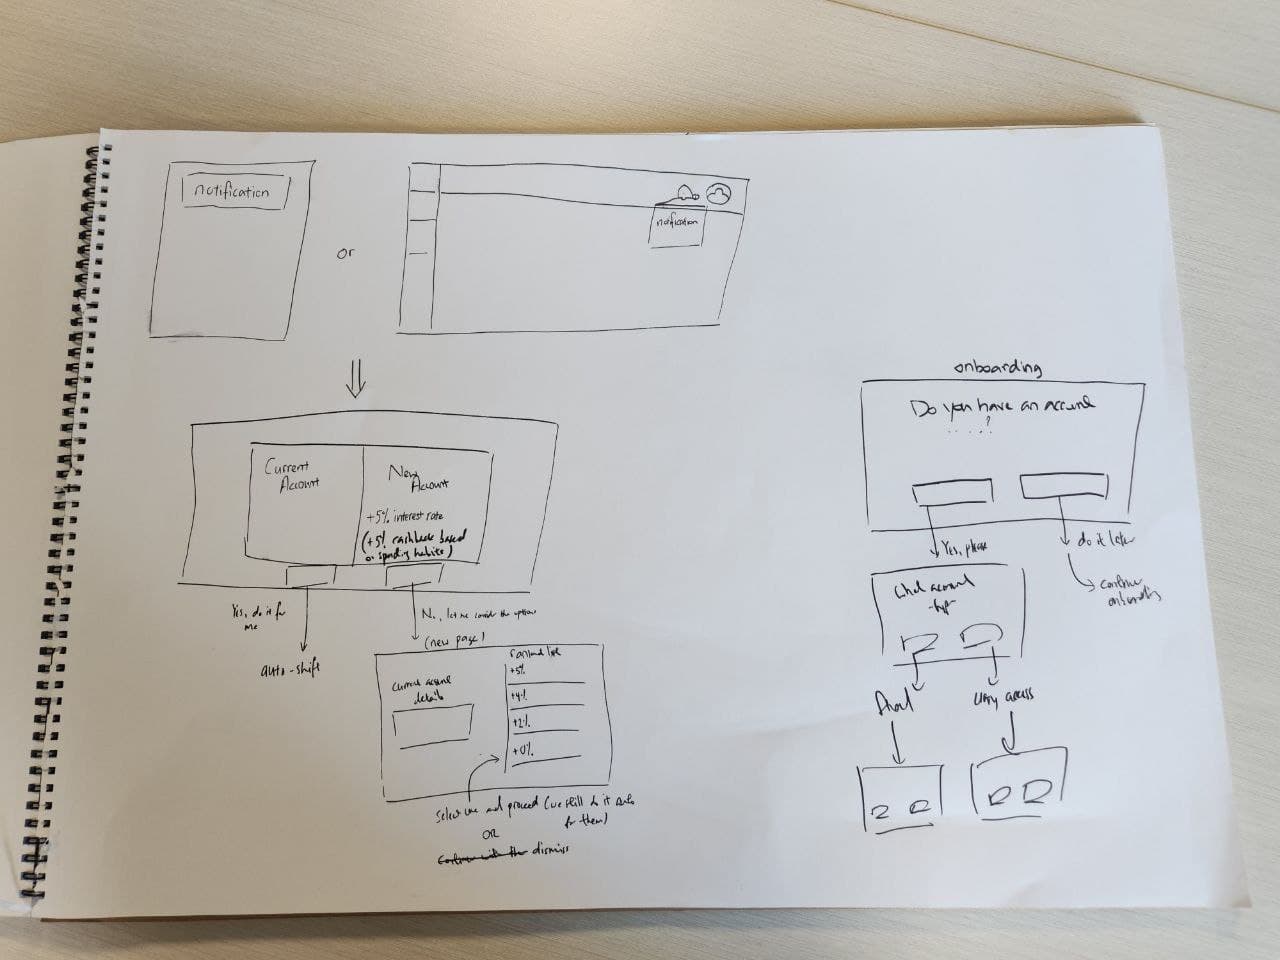 notification
or
notification
Current
Account
New
Account
+5% interest rate
(+5% cashback based
on spending habits)
Yes, do it for
me
auto-shift
No, let me consider the options
(new page)
Current account
details
+5%
+4%
+2%
+0%
Select one and proceed (we still do it
for them)
OR
dismiss
onboarding
Do you have an account
.....?
Yes, please
do it later
continue
onboarding
account
access